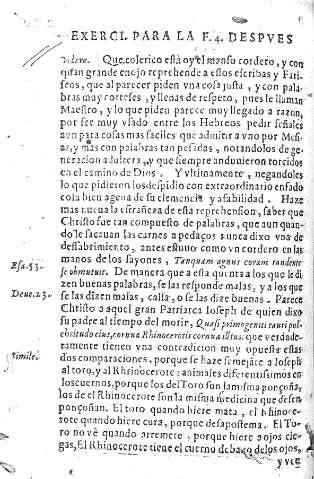 EXERCI. PARA LA F. 4. DESPVES
videre. Que colerico està oy el manso cordero, y con
quan grande enojo reprehende a estos escribas y Fari-
seos, que al parecer piden vna cosa justa, y con pala-
bras muy corteses, y llenas de respeto, pues le llaman
Maestro, y lo que piden parece muy llegado a razon,
por ser muy vsado entre los Hebreos pedir señales
aun para cosas mas faciles que admitir a vno por Mesi-
as, y mas con palabras tan pesadas, notandolos de ge-
neracion adultera, y que siempre anduuieron torcidos
en el camino de Dios. Y vltimamente, negandoles
lo que pidieron los despidio con extraordinario enfado
cosa bien agena de su clemencia y afabilidad. Haze
mas nueua la estrañeza de esta reprehension, saber que
Christo fue tan compuesto de palabras, que aun quan-
do le sacauan las carnes a pedaços nunca dixo vna de
dessabrimiento, antes estuuo como vn cordero en las
Esa. 53.
manos de los sayones, Tanquam agnus coram tondente
se obmutuit. De manera que a esta quenta a los que le di-
zen buenas palabras, se las responde malas, y a los que
Deut. 23.
se las dizen malas, calla, o se las dize buenas. Parece
Christo a aquel gran Patriarca Ioseph de quien dixo
su padre al tiempo del morir, Quasi primogeniti tauri pul-
chritudo eius, cornua Rhinocerotis cornua illius: que verdade-
ramente tienen vna contradicion muy opuesta estas
Simile.
dos comparaciones, porque se haze semejāte a Ioseph
al toro, y al Rhinocerote: animales diferentissimos en
los cuernos, porque los del Toro son la misma ponçoña,
los de el Rhinocerote son la misma medicina que desen
ponçoñan. El toro quando hiere mata, el Rhinoce-
rote quando hiere cura, porque desapostema. El To-
ro no vè quando arremete, porque hiere a ojos cie-
gas, El Rhinocerote tiene el cuerno debaxo de los ojos,